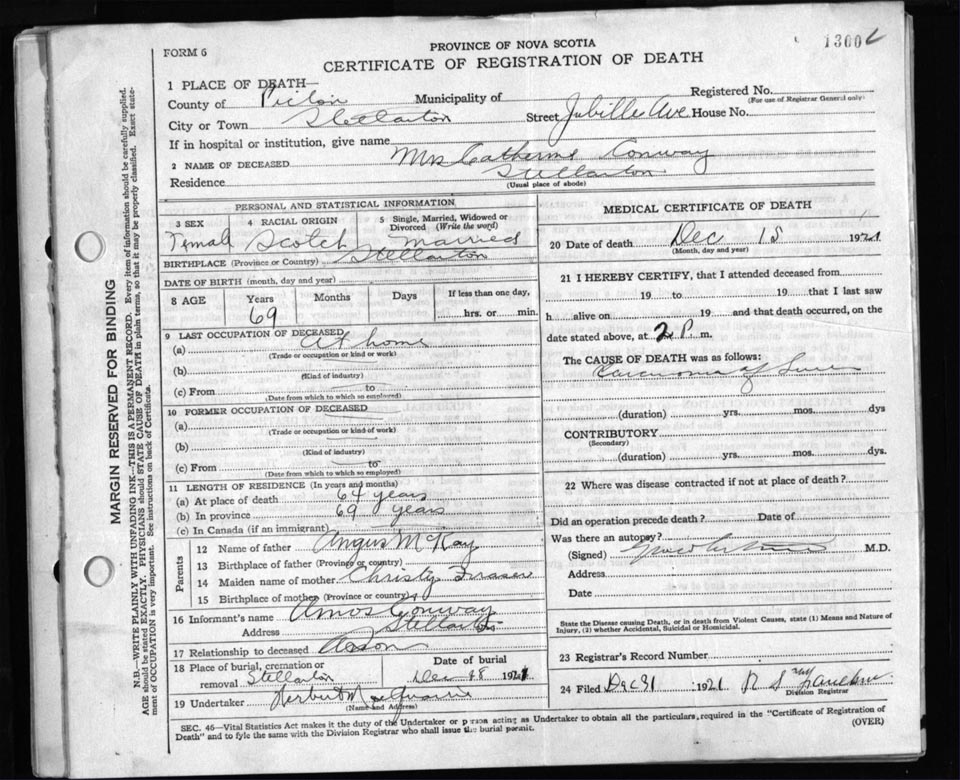 FORM 6
PROVINCE OF NOVA SCOTIA
1300
CERTIFICATE OF REGISTRATION OF DEATH
1 PLACE OF DEATH—
County of Pictou Municipality of Registered No.
(For use of Registrar General only)
City or Town Stellarton Street Jubille Ave. House No.
If in hospital or institution, give name
2 NAME OF DECEASED Mrs Catherine Conway
Residence Stellarton
(Usual place of abode)
PERSONAL AND STATISTICAL INFORMATION
3 SEX 4 RACIAL ORIGIN 5 Single, Married, Widowed or Divorced (Write the word)
Female Scotch Married
BIRTHPLACE (Province or Country) Stellarton
DATE OF BIRTH (month, day and year)
8 AGE Years Months Days If less than one day,
69 hrs. or min.
9 LAST OCCUPATION OF DECEASED
(a) At home
(Trade or occupation or kind or work)
(b)
(Kind of industry)
(c) From to
(Date from which to which so employed)
10 FORMER OCCUPATION OF DECEASED
(a)
(Trade or occupation or kind of work)
(b)
(Kind of industry)
(c) From to
(Date from which to which so employed)
11 LENGTH OF RESIDENCE (In years and months)
(a) At place of death 64 years
(b) In province 69 years
(c) In Canada (if an immigrant)
Parents
12 Name of father Angus McKay
13 Birthplace of father (Province or country)
14 Maiden name of mother Christy Fraser
15 Birthplace of mother (Province or country)
16 Informant's name Amos Conway
Address Stellarton
17 Relationship to deceased A son
18 Place of burial, cremation or removal Stellarton Date of burial Dec 1921
19 Undertaker Herbert
(Name and Address)
MEDICAL CERTIFICATE OF DEATH
20 Date of death Dec 18 1921
(Month, day and year)
21 I HEREBY CERTIFY, that I attended deceased from
19 to 19 that I last saw
h alive on 19 and that death occurred, on the
date stated above, at 2 P. m.
The CAUSE OF DEATH was as follows:
Carcinoma of Liver
(duration) yrs. mos. dys
CONTRIBUTORY
(Secondary)
(duration) yrs. mos. dys.
22 Where was disease contracted if not at place of death?
Did an operation precede death? Date of
Was there an autopsy?
(Signed) M.D.
Address
Date
State the Disease causing Death, or in death from Violent Causes, state (1) Means and Nature of
Injury, (2) whether Accidental, Suicidal or Homicidal.
23 Registrar's Record Number
24 Filed Dec 31 1921
Division Registrar
SEC. 46—Vital Statistics Act makes it the duty of the Undertaker or person acting as Undertaker to obtain all the particulars, required in the "Certificate of Registration of
Death" and to fyle the same with the Division Registrar who shall issue the burial permit. (OVER)
MARGIN RESERVED FOR BINDING
N.B.—WRITE PLAINLY WITH UNFADING INK—THIS IS A PERMANENT RECORD. Every item of information should be carefully supplied.
AGE should be stated EXACTLY. PHYSICIANS should STATE CAUSE OF DEATH in plain terms, so that it may be properly classified. Exact state-
ment of OCCUPATION is very important. See instructions on back of Certificate.